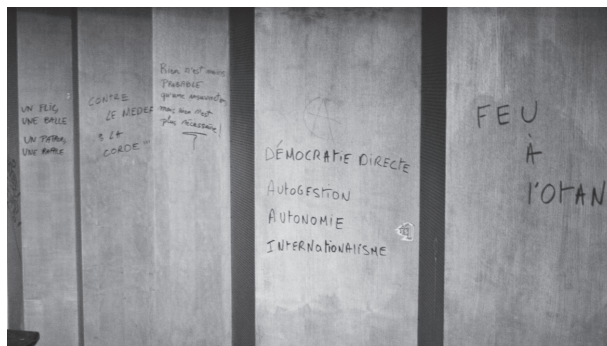 UN FLIC,
UNE BALLE
UN PATRON,
UNE RAFALE
CONTRE
LE MEDEF
LA
CORDE !!!
Rien n'est moins
PROBABLE
qu'une insurrection
mais rien n'est
plus nécessaire !
DÉMOCRATIE DIRECTE
AUTOGESTION
AUTONOMIE
INTERNATIONALISME
FEU
À
l'OTAN